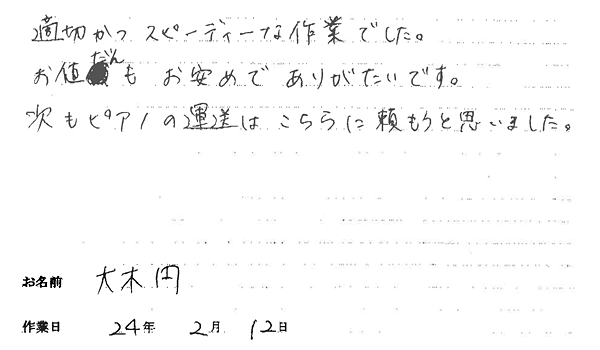 適切かつスピーディーな作業でした。
お値だんもお安めでありがたいです。
次もピアノの運送はこちらに頼もうと思いました。
お名前 大木 円
作業日 24年 2月 12日